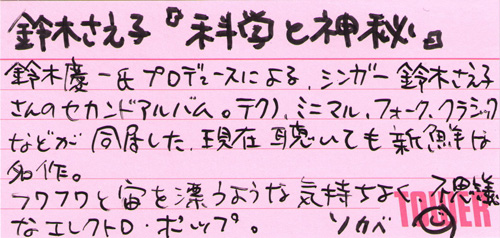 鈴木さえ子『科学と神秘』
鈴木慶一氏プロデュースによる、シンガー鈴木さえ子
さんのセカンドアルバム。テクノ、ミニマル、フォーク、クラシック
などが同居した、現在聴いても新鮮な
名作。
フワフワと宙を漂うような気持ちよく不思議
なエレクトロ・ポップ。 ソカベ
TOWER